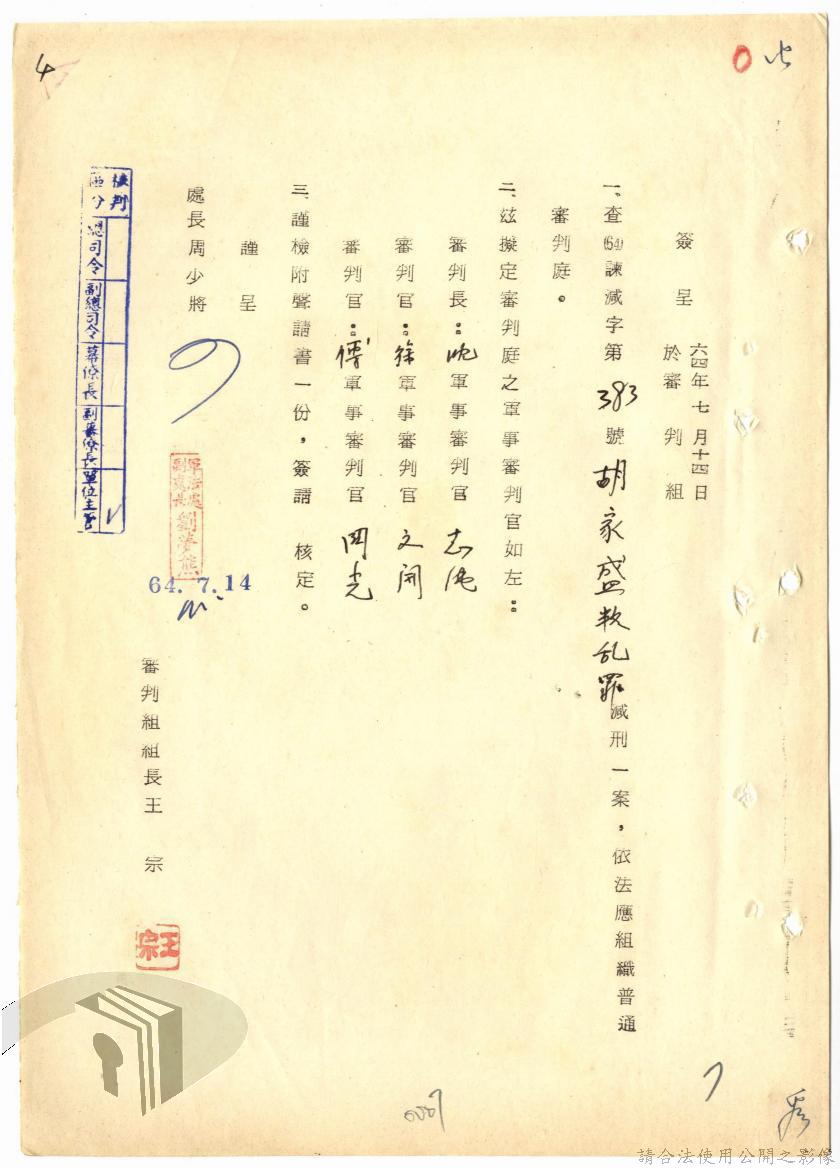 簽呈
六四年七月十四日
於審判組
一、查(64)諫減字第383號胡家盛叛乱罪減刑一案，依法應組織普通
審判庭。
二、茲擬定審判庭之軍事審判官如左：
審判長：軍事審判官志純
審判官：徐軍事審判官文開
審判官：傅軍事審判官國光
三、謹檢附聲請書一份，簽請 核定。
謹呈
處長周少將
軍法處
副處長劉夢熊
64.7.14
審判組組長王 宗
王宗
核判區分
總司令
副總司令
幕僚長
副幕僚長
單位主管
4
請合法使用公開之影像